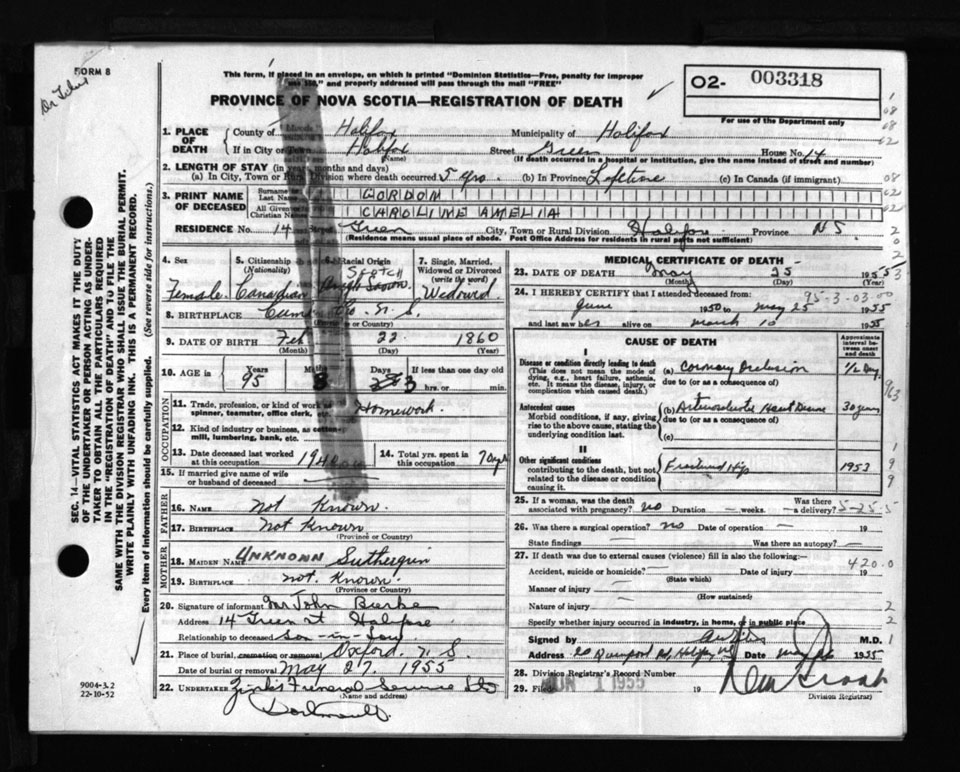 FORM 8
This form, if placed in an envelope, on which is printed "Dominion Statistics—Free, penalty for improper
use $100," and properly addressed will pass through the mail "FREE"
PROVINCE OF NOVA SCOTIA—REGISTRATION OF DEATH
02- 003318
For use of the Department only
1. PLACE OF DEATH
County of Halifax Municipality of Halifax
If in City or Town Halifax Street Green House No. 14
(Name) (If death occurred in a hospital or institution, give the name instead of street and number)
2. LENGTH OF STAY (in years, months and days)
(a) In City, Town or Rural Division where death occurred 5 yrs. (b) In Province Lifetime (c) In Canada (if immigrant)
3. PRINT NAME OF DECEASED
Surname or Last Name GORDON
All Given or Christian Names CAROLINE AMELIA
RESIDENCE No. 14 Street Green City, Town or Rural Division Halifax Province N.S.
(Residence means usual place of abode. Post Office Address for residents in rural parts not sufficient)
4. Sex Female
5. Citizenship (Nationality) Canadian
6. Racial Origin Scotch
7. Single, Married, Widowed or Divorced (write the word) Widowed
8. BIRTHPLACE Cumb Co. N. S.
(Province or Country)
9. DATE OF BIRTH Feb 22 1860
(Month) (Day) (Year)
10. AGE in Years 95 Months 3 Days 3 If less than one day old
hrs. or min.
OCCUPATION
11. Trade, profession, or kind of work as spinner, teamster, office clerk, etc. Homework.
12. Kind of industry or business, as cotton mill, lumbering, bank, etc.
13. Date deceased last worked at this occupation 1940
14. Total yrs. spent in this occupation 70 yrs
15. If married give name of wife or husband of deceased
FATHER
16. NAME Not Known.
17. BIRTHPLACE Not Known.
(Province or Country)
MOTHER
18. MAIDEN NAME UNKNOWN
19. BIRTHPLACE not Known.
(Province or Country)
20. Signature of informant Mr John
Address 14 Green St Halifax
Relationship to deceased Son-in-law
21. Place of burial, cremation or removal Oxford. N S
Date of burial or removal May 27. 1955
22. UNDERTAKER Funeral Service Ltd
(Name and address)
Dartmouth.
MEDICAL CERTIFICATE OF DEATH
23. DATE OF DEATH May 25 1955
(Month) (Day)
24. I HEREBY CERTIFY that I attended deceased from 95-3-03-00
June 1950 to May 25 1955
and last saw her alive on March 10 1955
CAUSE OF DEATH
Approximate interval between onset and death
I
Disease or condition directly leading to death
(This does not mean the mode of dying, e.g., heart failure, asthenia, etc. It means the disease, injury, or complication which caused death.)
(a) Coronary Occlusion 1/2 Day
due to (or as a consequence of)
Antecedent causes
Morbid conditions, if any, giving rise to the above cause, stating the underlying condition last.
(b) Arteriosclerotic Heart Disease 30 years
due to (or as a consequence of)
(c)
II
Other significant conditions contributing to the death, but not related to the disease or condition causing it.
Fractured Hip 1953
25. If a woman, was the death associated with pregnancy? no Duration — weeks. Was there a delivery? 5-25-5
26. Was there a surgical operation? no Date of operation —
State findings — Was there an autopsy? —
27. If death was due to external causes (violence) fill in also the following:—
420.0
Accident, suicide or homicide? — Date of injury 19
(State which)
Manner of injury —
(How sustained)
Nature of injury —
Specify whether injury occurred in industry, in home, or in public place
Signed by M.D.
Address 20 Halifax Date May 1955
28. Division Registrar's Record Number
29. Filed JUN 1 1955 19
(Division Registrar)
SEC. 14—VITAL STATISTICS ACT MAKES IT THE DUTY
OF THE UNDERTAKER OR PERSON ACTING AS UNDER-
TAKER TO OBTAIN ALL THE PARTICULARS REQUIRED
IN THE "REGISTRATION OF DEATH" AND TO FILE THE
SAME WITH THE DIVISION REGISTRAR WHO SHALL ISSUE THE BURIAL PERMIT.
WRITE PLAINLY WITH UNFADING INK. THIS IS A PERMANENT RECORD.
Every item of information should be carefully supplied. (See reverse side for instructions.)
9004-3.2
22-10-52